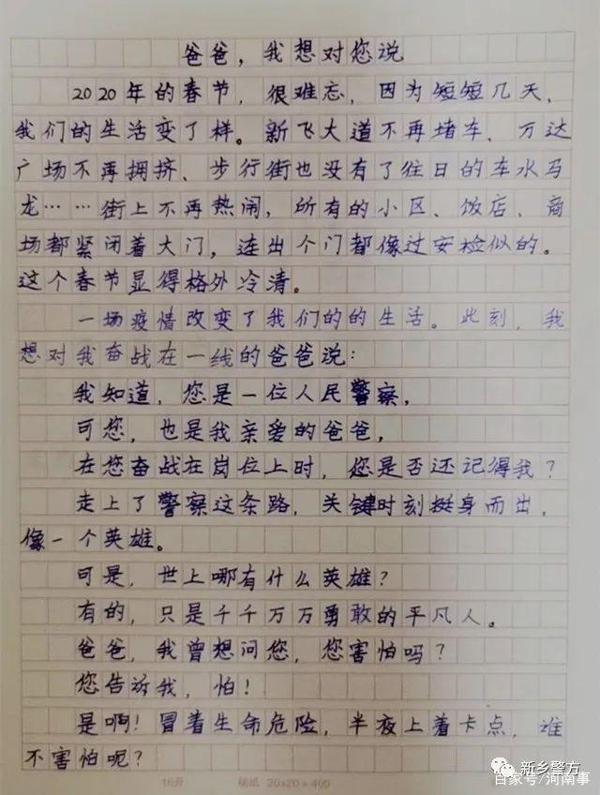 爸爸，我想对您说
2020年的春节，很难忘，因为短短几天，
我们的生活变了样。新飞大道不再堵车、万达
广场不再拥挤、步行街也没有了往日的车水马
龙……街上不再热闹，所有的小区、饭店、商
场都紧闭着大门，连出个门都像过安检似的。
这个春节显得格外冷清。
一场疫情改变了我们的的生活。此刻，我
想对我奋战在一线的爸爸说：
我知道，您是一位人民警察，
可您，也是我亲爱的爸爸，
在您奋战在岗位上时，您是否还记得我？
走上了警察这条路，关键时刻挺身而出，
像一个英雄。
可是，世上哪有什么英雄？
有的，只是千千万万勇敢的平凡人。
爸爸，我曾想问您，您害怕吗？
您告诉我，怕！
是啊！冒着生命危险，半夜上着卡点，谁
不害怕呢？
16开 稿纸 20x20=400
新乡警方
百家号/河南事